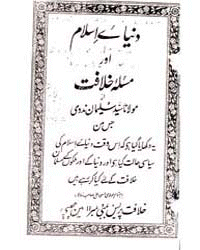 دنیاے اسلام
اور
مسئلہ خلافت
مولانا سید سلیمان ندوی
جس مین
یہ دکھایا گیا ہو کہ اس وقت دنیاے اسلام کی
سیاسی حالت کیا ہو اور دنیا کے اور حکومتین مسلمان
خلافت کے لئے کیا کر رہے ہین
خلافت پریس بمبئی